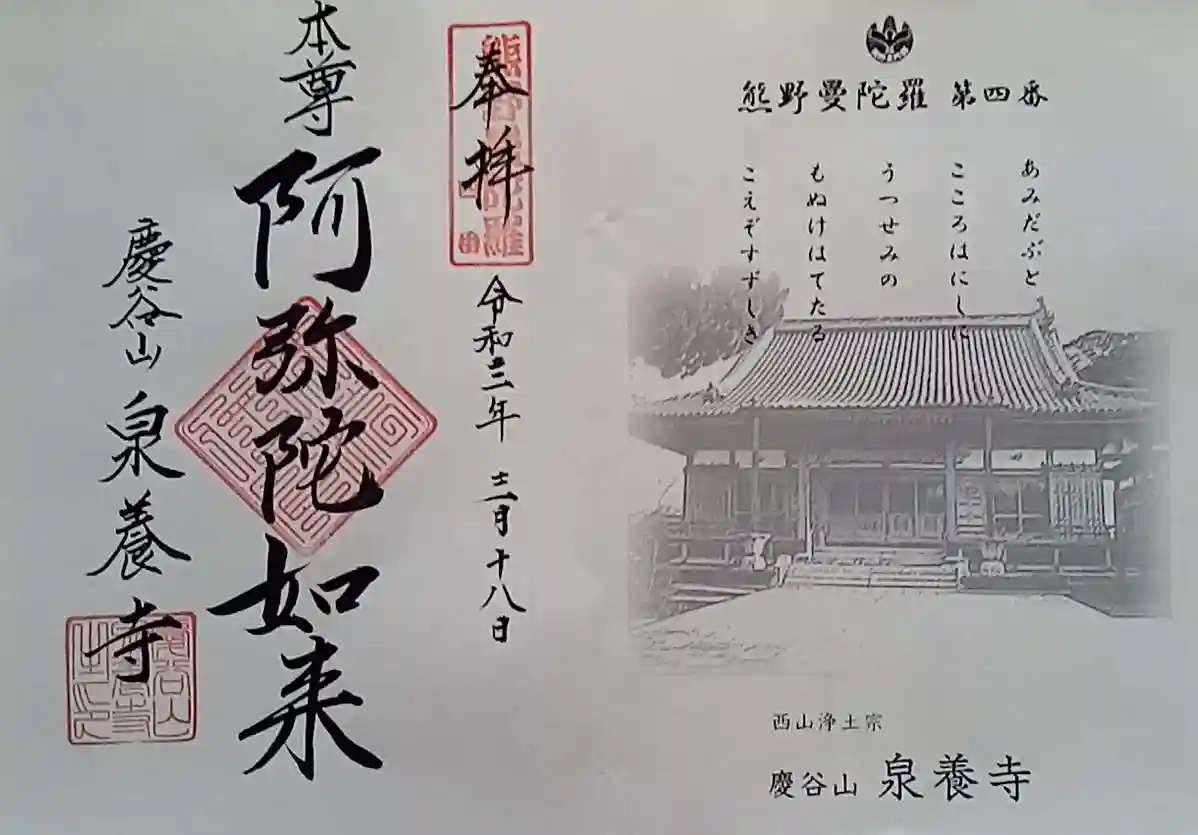 熊野曼陀羅 第四番
あみだぶと
こころはにしに
うつせみの
もぬけはてたる
こえぞすずしき
西山浄土宗
慶谷山 泉養寺
奉拝
熊野曼陀羅
令和三年 十二月十八日
本尊
阿弥陀如来
慶谷山 泉養寺